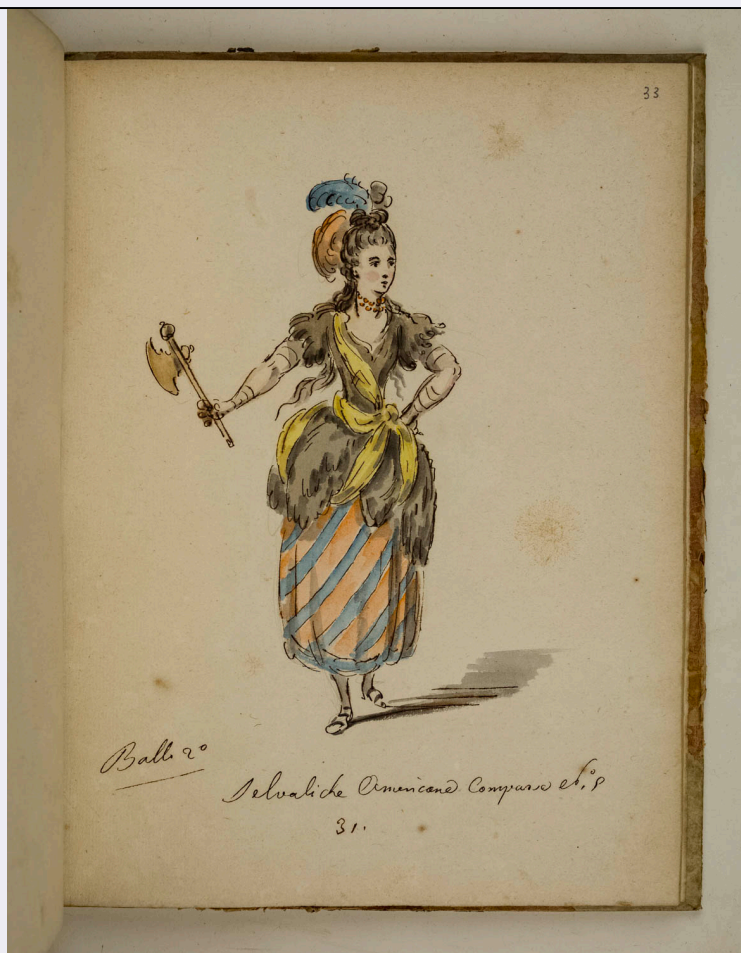 33
Ballo 2º
Selvatiche Americane Comparse Nº 8
31.